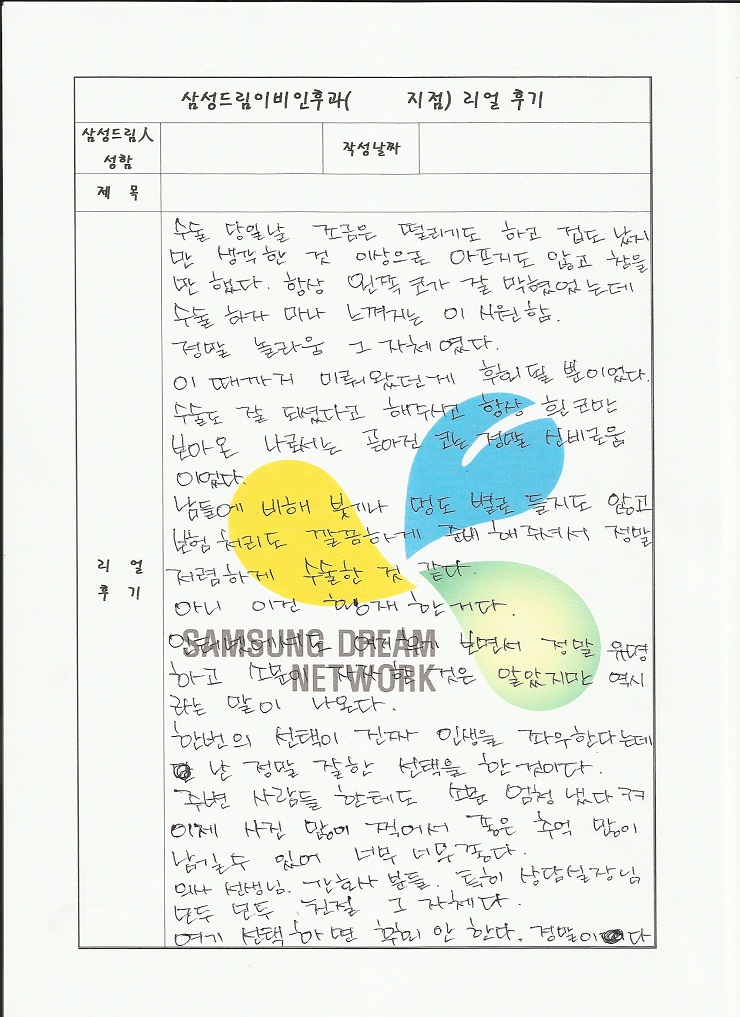 삼성드림이비인후과( 지점) 리얼 후기
삼성드림人
성함
작성날짜
제 목
리 얼
후 기
수술 당일날 조금은 떨리기도 하고 겁도 났지
만 생각한 것 이상으로 아프지도 않고 참을
만 했다. 항상 왼쪽 코가 잘 막혔었는데
수술 하자 마자 느껴지는 이 시원함.
정말 놀라움 그 자체였다.
이 때까지 미뤄왔던게 후회될 뿐이었다.
수술도 잘 되셨다고 해주시고 항상 휜코만
보아온 나로서는 곧아진 코는 정말 신비로움
이었다.
남들에 비해 붓기나 멍도 별로 들지도 않고
보험처리도 깔끔하게 준비해주셔서 정말
저렴하게 수술한 것 같다.
아니 이건 횡재한거다.
인터넷에서도 여러 후기 보면서 정말 유명
하고 소문이 자자한 것은 알았지만 역시
라는 말이 나온다.
SAMSUNG DREAM
NETWORK
한번의 선택이 진짜 인생을 좌우한다는데
난 정말 잘한 선택을 한것이다.
주변 사람들 한테도 소문 엄청 냈다 ㅋㅋ
이제 사진 많이 찍어서 좋은 추억 많이
남길수 있어 너무 너무 좋다.
의사 선생님. 간호사 분들. 특히 상담실장님
모두 모두 친절 그 자체다.
여기 선택하면 후회 안 한다. 정말이다